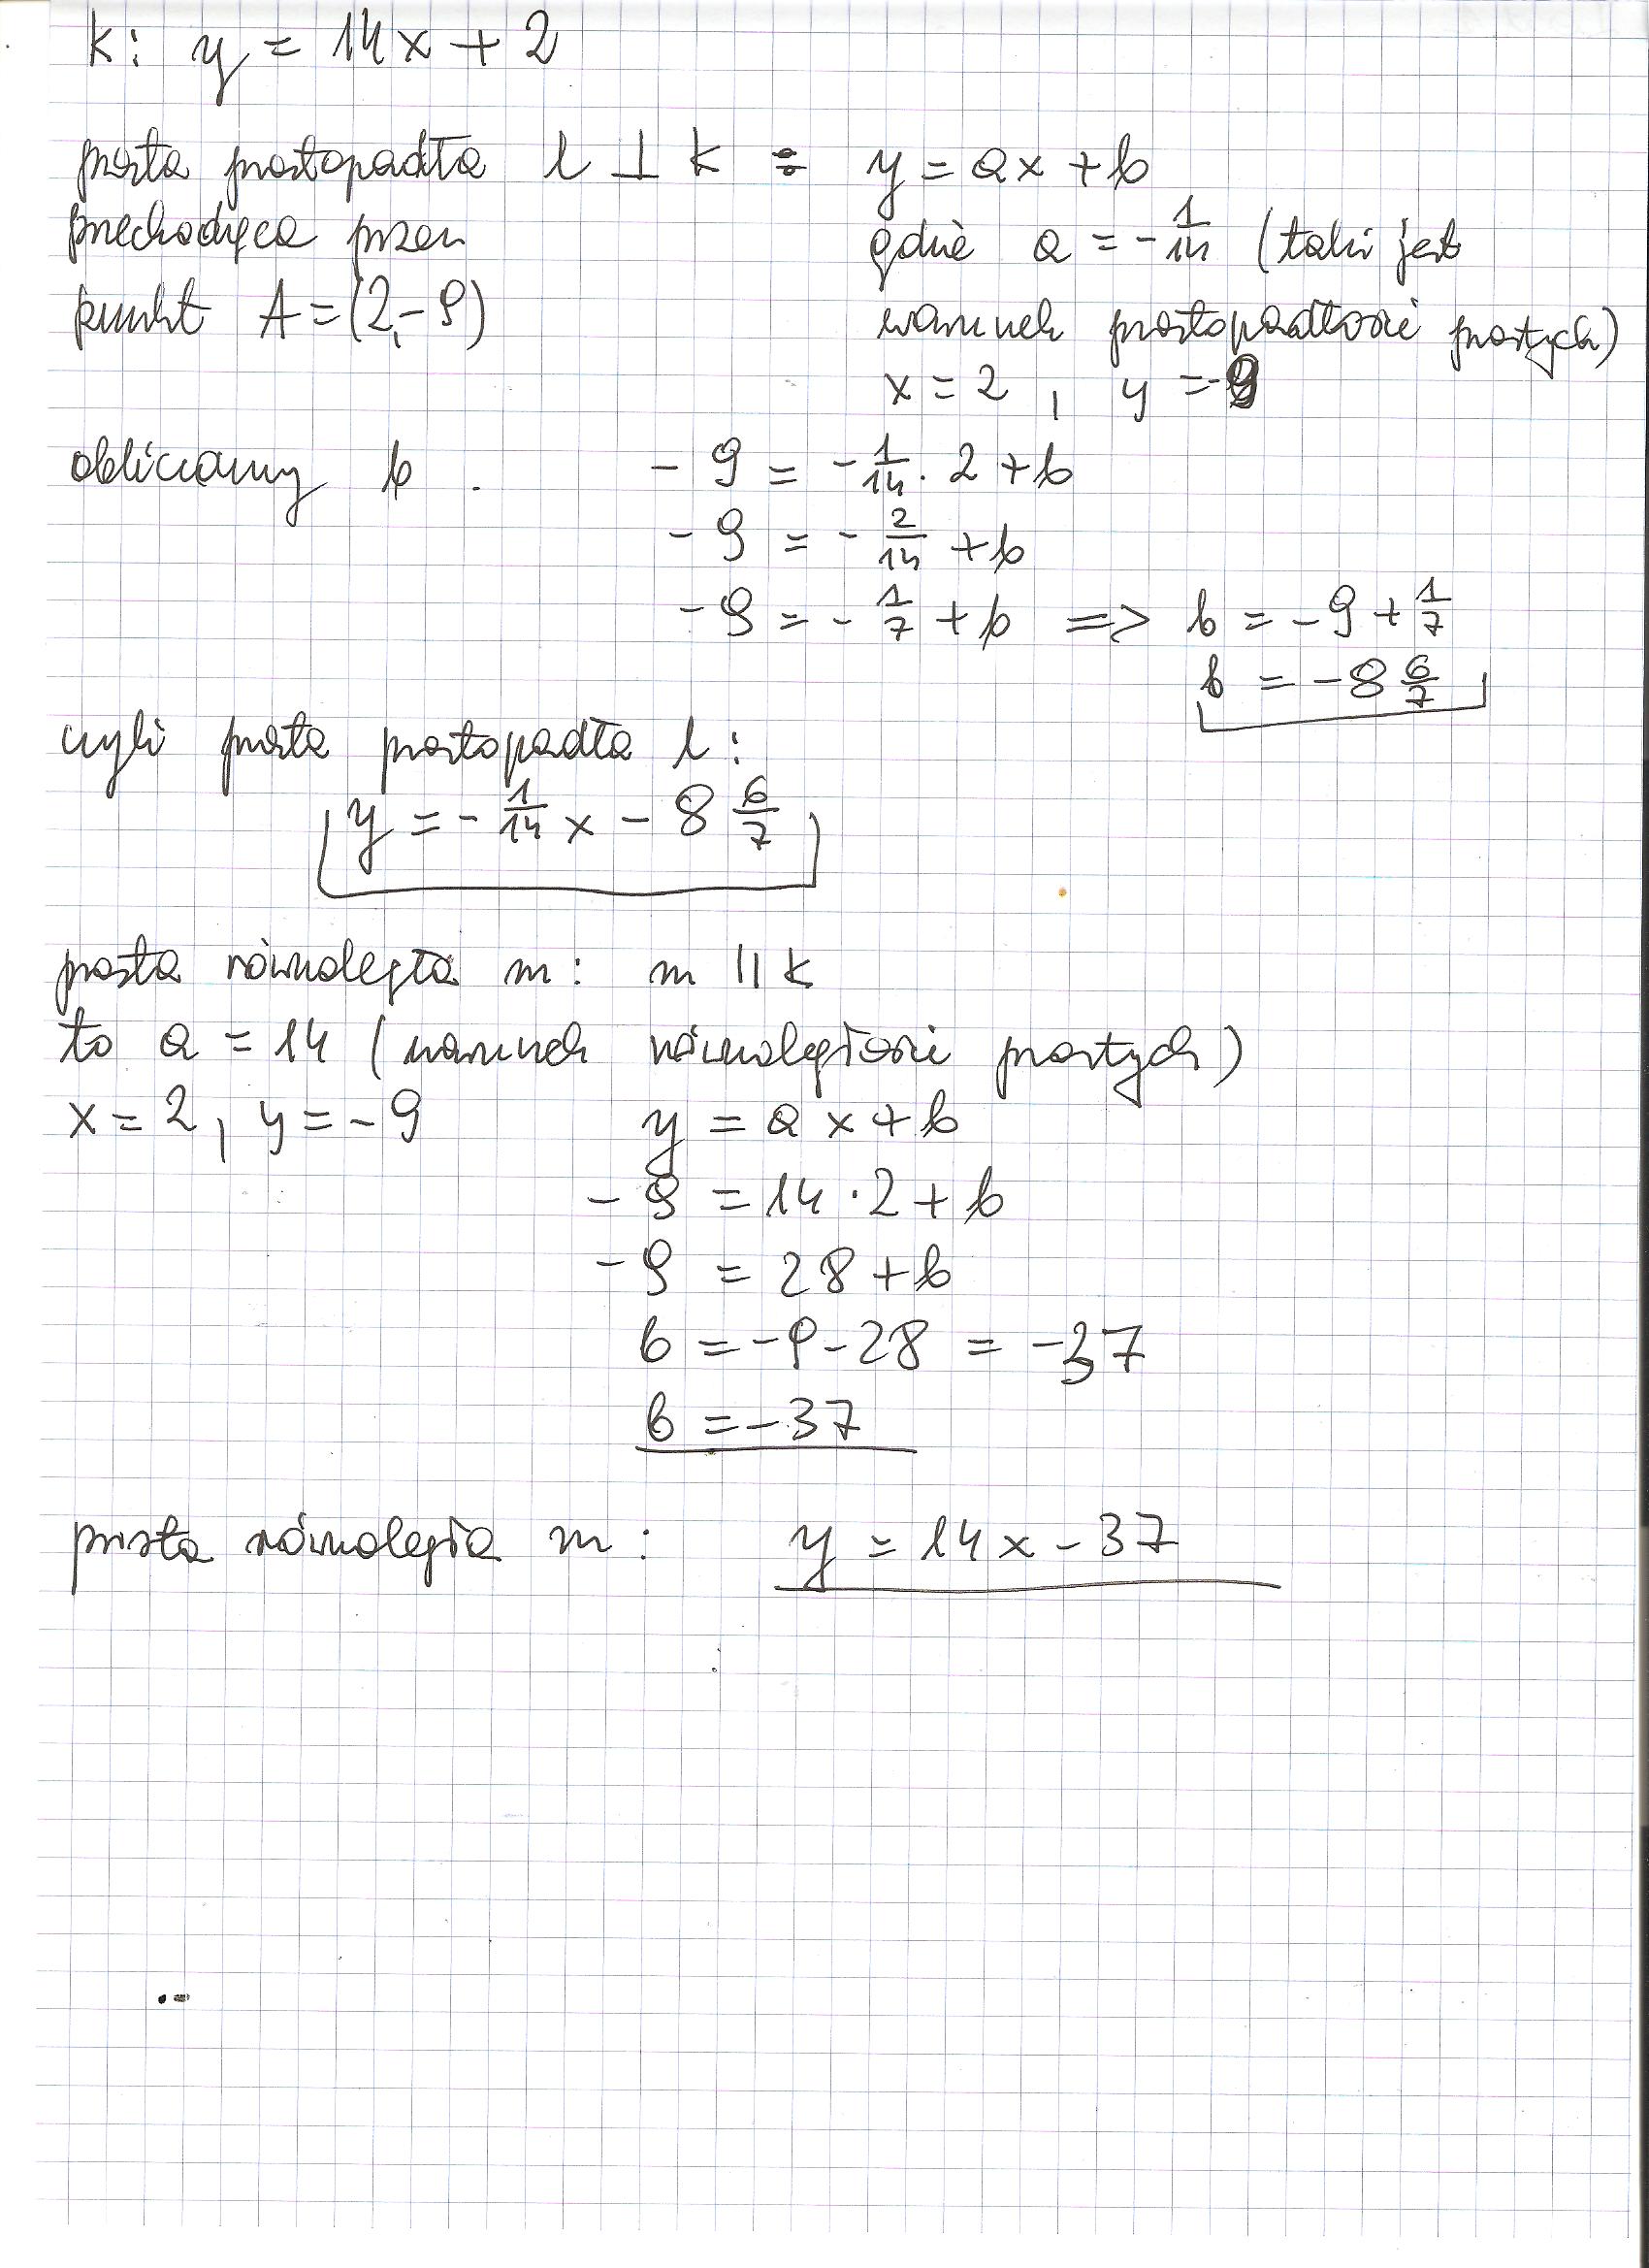 k: y = 14x + 2
prosta prostopadła l ⊥ k : y = ax + b
przechodząca przez gdzie a = -1/14 (taki jest
punkt A = (2,-9) warunek prostopadłości prostych)
x = 2 , y = -9
obliczamy b . -9 = -1/14 · 2 + b
-9 = -2/14 + b
-9 = -1/7 + b => b = -9 + 1/7
b = -8 6/7
czyli prosta prostopadła l:
y = -1/14 x - 8 6/7
prosta równoległa m: m || k
to a = 14 (warunek równoległości prostych)
x = 2 , y = -9 y = ax + b
-9 = 14 · 2 + b
-9 = 28 + b
b = -9 - 28 = -37
b = -37
prosta równoległa m: y = 14x - 37